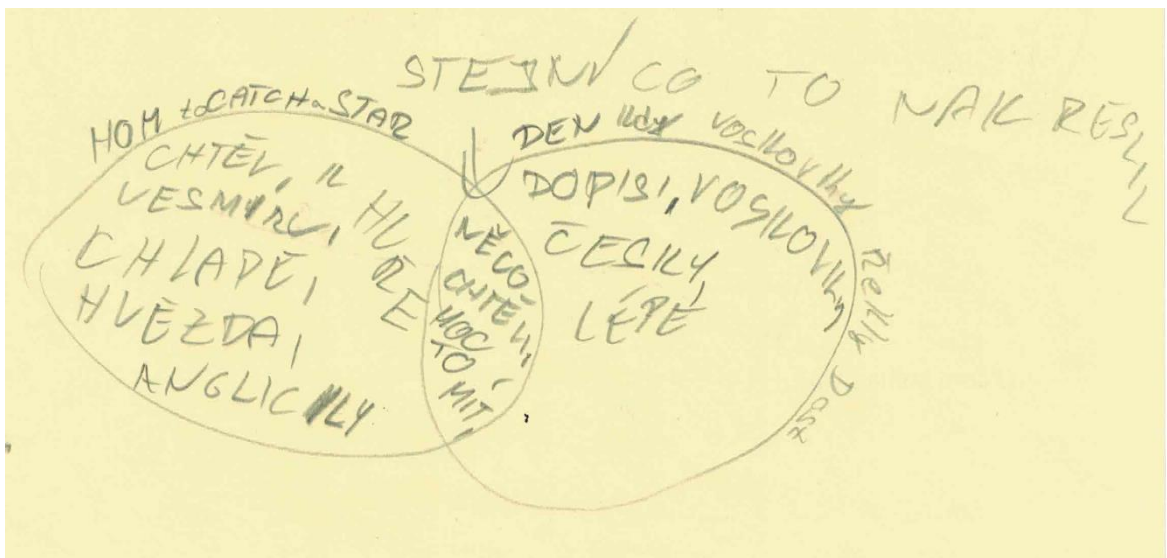 STEJNÝ CO TO NAK RESIL
HOW to CATCH a STAR
CHTĚL, 
VESMÍRU, HŮŘE
CHLAPĚ,
HVĚZDA,
ANGLICKY
NĚCO
CHTĚLI,
MOC
TO
MÍT,
DEN kdy voskovky řekly Dost
DOPISI, VOSKOVKY
ČESKY,
LÉPE